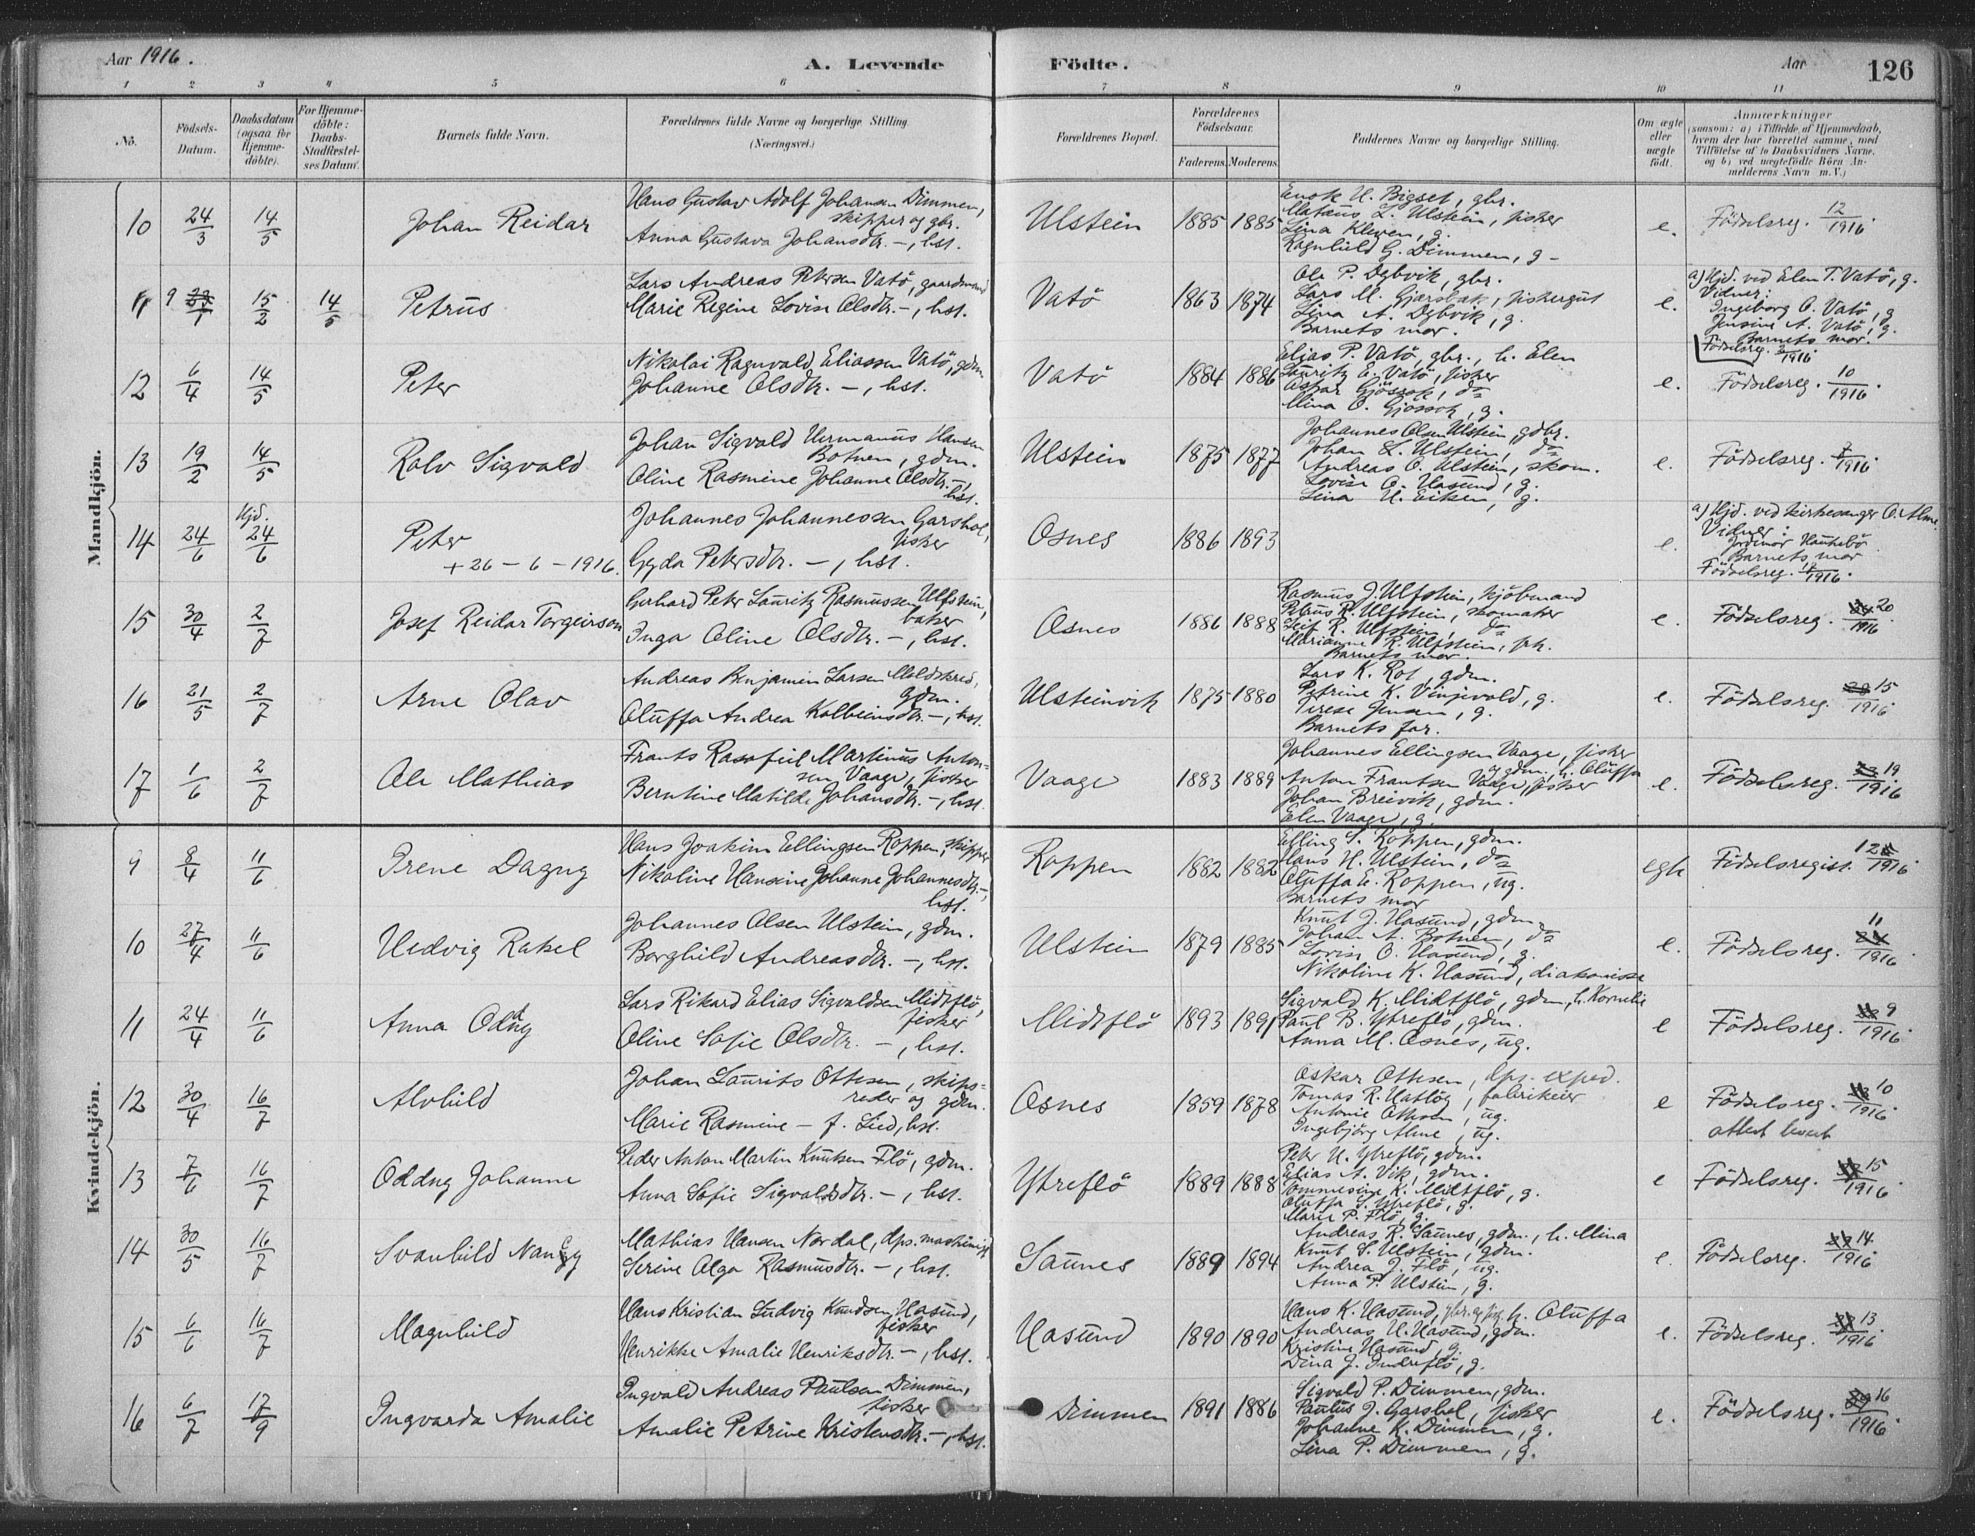 Aar 1916.
A. Levende Födte.
Aar
126
1 2 3 4 5 6 7 8 9 10 11
No.
Födsels-Datum.
Daabsdatum (ogsaa for Hjemme-döbte).
For Hjemme-döbte: Daabs-Stadfæstel-ses Datum.
Barnets fulde Navn.
Forældrenes fulde Navne og borgerlige Stilling (Næringsvei.)
Forældrenes Bopæl.
Forældrenes Födselsaar.
Faderens. Moderens.
Faddernes Navne og borgerlige Stilling.
Om ægte eller uægte födt.
Anmærkninger
(saasom: a) i Tilfælde af Hjemmedaab, hvem der har forrettet samme, med Tilföielse af to Daabsvidners Navne, og b) ved uægtefödte Börn An-melderens Navn m. V.)
Mandkjön.
10 24/3 14/5 Johan Reidar
Hans Gustav Adolf Johansen Dimmen,
skipper og gbr.
Anna Gustava Johansdtr. –, hst.
Ulstein 1885 1885
Enok H. Bigset, gbr.
Mataus L. Ulstein, fisker
Lina Kleven, g.
Ragnhild G. Dimmen, g –
e. Födselsreg. 12/1916.
9 15/2 14/5 Petrus
Lars Andreas Petersen Vatö, gaardmand
Marie Regine Lovise Olsdtr. –, hst.
Vatö 1863 1874
Ole P. Dybvik, gbr.
Lars M. Gjersbak, fiskergut
Lina A. Dybvik, g.
Barnets mor.
e. a) Hjd. ved Elen T. Vatö, g.
Vidner:
Ingeborg O. Vatö, g
Jensine A. Vatö, g.
Barnets mor.
Födselsreg. 3/1916
12 6/4 14/5 Peter
Nikolai Ragnvald Eliassen Vatö, gdm.
Johanne Olsdtr. –, hst.
Vatö 1884 1886
Elias P. Vatö, gbr., h. Elen
Lauritz E. Vatö, fisker
Oskar Gjössok, do
Mina O. Gjössok, g.
e. Födselsreg. 10/1916.
13 19/2 14/5 Rolv Sigvald
Johan Sigvald Hermanus Hansen
Botnen, gdm.
Oline Rasmine Johanne Olsdtr. –,
hst.
Ulstein 1875 1877
Johannes Olsen Ulstein, gdbr.
Johan L. Ulstein, do
Andreas O. Ulstein, skom.
Lovise O. Hasund, g.
Lina H. Eiken, g.
e. Födselsreg. 7/1916.
Hjd.
14 24/6 24/6 Peter
+ 26 – 6 – 1916.
Johannes Johannessen Garshol,
fisker
Gyda Petersdtr. –, hst.
Osnes 1886 1893
e. a) Hjd. ved kirkesanger O. Alme.
Vidner:
Jordmor Haukebö.
Barnets mor
Födselsreg. 17/1916.
15 30/4 2/7 Josef Reidar Torgeirson
Gerhard Peter Lauritz Rasmussen Ulfstein,
baker
Inga Oline Olsdtr. –, hst.
Osnes 1886 1888
Rasmus J. Ulfstein, kjöbmand
Petrus R. Ulfstein, skomaker
Leif R. Ulfstein, do
Marianne R. Ulfstein, frk.
Barnets mor
e. Födselsreg. 20/1916.
16 21/5 2/7 Arne Olav
Andreas Benjamin Larsen Moldskred,
gdm.
Oluffa Andrea Kolbeinsdtr. –, hst.
Ulsteinvik 1875 1880
Lars K. Rot, gdm.
Petrine K. Vinjevold, g.
Terese Jensen, g.
Barnets far.
e. Födselsreg. 15/1916.
17 1/6 2/7 Ole Mathias
Frants Rasofiel Martinus Anton-
sen Vaage, fisker
Berntine Matilde Johansdtr. –, hst.
Vaage 1883 1889
Johannes Ellingsen Vaage, fisker
og gdm., h. Oluffa
Anton Frantsen Vaage, fisker
Johan Breivik, gdm.
Elen Vaage, g.
e. Födselsreg. 19/1916
Kvindekjön.
9 8/4 11/6 Irene Dagny
Hans Joakim Ellingsen Roppen, skipper
Nikoline Hansine Johanne Johannesdtr. –,
hst.
Roppen 1882 1882
Elling S. Roppen, gdm.
Hans H. Ulstein, do
Oluffa E. Roppen, ug.
Barnets mor
egte Födselsregist. 12/1916.
10 27/4 11/6 Hedvig Rakel
Johannes Olsen Ulstein, gdm.
Borghild Andreasdtr. –, hst.
Ulstein 1879 1885
Knut J. Hasund, gdm.
Johan A. Botnen, do
Lovise O. Hasund, g.
Nikoline K. Hasund, diakonisse
e. Födselsreg. 11/1916.
11 24/4 11/6 Anna Oddny
Lars Rikard Elias Sigvaldsen Midtflö,
fisker
Oline Sofie Olsdtr. –, hst.
Midtflö 1893 1891
Sigvald K. Midtflö, gdm., h. Kornelie
Paul B. Ytreflö, gdm.
Anna M. Osnes, ug.
e Födselsreg. 9/1916.
12 30/4 16/7 Alvhild
Johan Laurits Ottesen, skips-
reder og gdm.
Marie Rasmine – f. Lied, hst.
Osnes 1859 1878
Oskar Ottesen, dps. exped.
Tomas R. Hatlöy, fabrikeier
Antonie Ottesen, ug.
Ingebjörg Alme, ug.
e Födselsreg. 10/1916.
attest levert
13 7/6 16/7 Oddny Johanne
Peder Anton Martin Knutsen Flö, gdm.
Anna Sofie Sigvaldsdtr. –, hst.
Ytreflö 1889 1888
Peter H. Ytreflö, gdm.
Elias A. Vik, gdm.
Tommesine K. Midtflö, g.
Oluffa S. Ytreflö, g.
Marie P. Flö, g.
e Födselsreg. 15/1916.
14 30/5 16/7 Svanhild Nancy
Mathias Hansen Nordal, dps. maskinist
Serine Olga Rasmusdtr. –, hst.
Saunes 1889 1894
Andreas R. Saunes, gdm., h. Mina
Knut S. Ulstein, gdm.
Andrea J. Flö, ug.
Anna P. Ulstein, g.
e. Födselsreg. 14/1916.
15 6/6 16/7 Magnhild
Hans Kristian Ludvig Knudsen Hasund,
fisker
Henrikke Amalie Henriksdtr. –, hst.
Hasund 1890 1890
Hans K. Hasund, gbr. og fisk. h. Oluffa
Andreas H. Hasund, gdm.
Kristine Hasund, g.
Dina J. Indreflö, g.
e. Födselsreg. 13/1916.
16 6/7 17/9 Ingvarda Amalie
Ingvald Andreas Paulsen Dimmen,
fisker
Amalie Petrine Kristensdtr. –, hst.
Dimmen 1891 1886
Sigvald P. Dimmen, gdm.
Paulus J. Garshol, fisker
Johanne K. Dimmen, g.
Lina P. Dimmen, g.
e. Födselsreg. 16/1916.